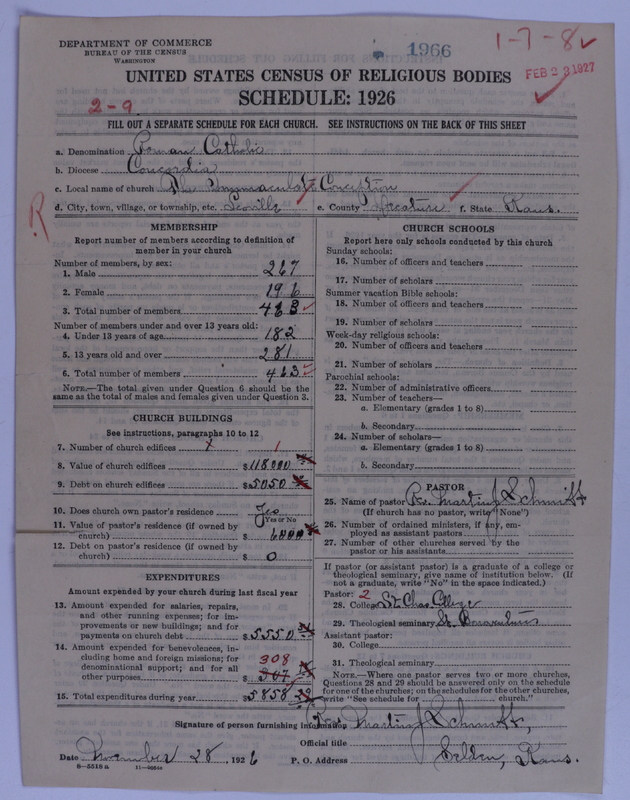 DEPARTMENT OF COMMERCE
BUREAU OF THE CENSUS
WASHINGTON
1966
1-7-8
FEB 23 1927
UNITED STATES CENSUS OF RELIGIOUS BODIES
SCHEDULE: 1926
2-9
FILL OUT A SEPARATE SCHEDULE FOR EACH CHURCH. SEE INSTRUCTIONS ON THE BACK OF THIS SHEET
a. Denomination Roman Catholic
b. Diocese Concordia
c. Local name of church The Immaculate Conception
d. City, town, village, or township, etc. Leoville e. County Decature f. State Kans.
R
MEMBERSHIP
Report number of members according to definition of member in your church
Number of members, by sex:
1. Male 267
2. Female 196
3. Total number of members 463
Number of members under and over 13 years old:
4. Under 13 years of age 182
5. 13 years old and over 281
6. Total number of members 463
NOTE.—The total given under Question 6 should be the
same as the total of males and females given under Question 3.
CHURCH BUILDINGS
See instructions, paragraphs 10 to 12
7. Number of church edifices 1
8. Value of church edifices $118000
9. Debt on church edifices $5050
10. Does church own pastor's residence Yes
Yes or No
11. Value of pastor's residence (if owned by
church) $ 6000
12. Debt on pastor's residence (if owned by
church) $ 0
EXPENDITURES
Amount expended by your church during last fiscal year
13. Amount expended for salaries, repairs,
and other running expenses; for im-
provements or new buildings; and for
payments on church debt $5550
14. Amount expended for benevolences, in-
cluding home and foreign missions; for
denominational support; and for all
other purposes $ 307 308
15. Total expenditures during year $5858
CHURCH SCHOOLS
Report here only schools conducted by this church
Sunday schools:
16. Number of officers and teachers
17. Number of scholars
Summer vacation Bible schools:
18. Number of officers and teachers
19. Number of scholars
Week-day religious schools:
20. Number of officers and teachers
21. Number of scholars
Parochial schools:
22. Number of administrative officers
23. Number of teachers—
a. Elementary (grades 1 to 8)
b. Secondary
24. Number of scholars—
a. Elementary (grades 1 to 8)
b. Secondary
PASTOR
25. Name of pastor Rev. Martin J Schmitt
(If church has no pastor, write "None")
26. Number of ordained ministers, if any, em-
ployed as assistant pastors
27. Number of other churches served by the
pastor or his assistants
If pastor (or assistant pastor) is a graduate of a college or
theological seminary, give name of institution below. (If
not a graduate, write "No" in the space indicated.)
Pastor: 2
28. College St. Chas. College
29. Theological seminary St. Bonaventure
Assistant pastor:
30. College
31. Theological seminary
NOTE.—Where one pastor serves two or more churches,
Questions 28 and 29 should be answered only on the schedule
for one of the churches; on the schedules for the other churches,
write "See schedule for church."
Signature of person furnishing information Rev Martin J Schmitt,
Official title
Date November 28, 1926 P. O. Address Selden, Kans.
8-5518 a